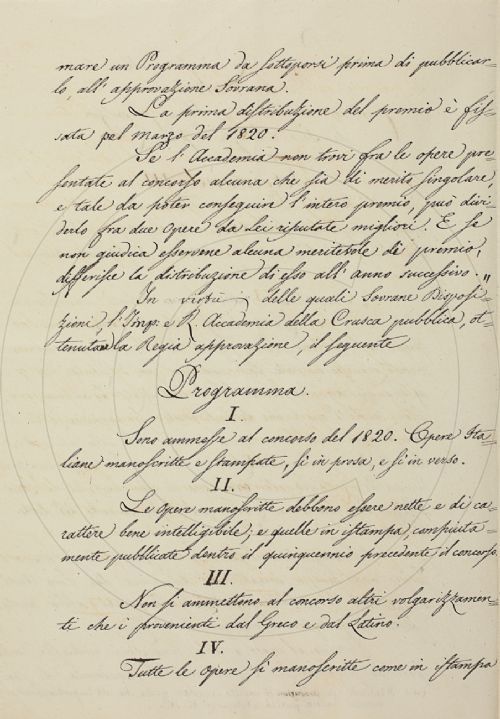 mare un Programma da sottoporsi prima di pubblicar=
lo all' approvazione Sovrana.
La prima distribuzione del premio è fis=
sata pel marzo del 1820.
Se l' Accademia non trovi fra le opere pre=
sentate al concorso alcuna che sia di merito singolare
e tale da poter conseguire l' intero premio, può divi=
derlo fra due opere da Lei riputate migliori. E se
non giudica esservene alcuna meritevole di premio,
differisce la distribuzione di esso all' anno successivo. „
In virtù delle quali Sovrane Disposi=
zioni, l' Imp. e R. Accademia della Crusca pubblica, ot=
tenutane la Regia approvazione, il seguente
Programma.
I.
Sono ammesse al concorso del 1820. Opere Ita=
liane manoscritte e stampate, sì in prosa, e sì in verso.
II.
Le Opere manoscritte debbono essere nette e di ca=
rattere bene intelligibile; e quelle in istampa, compiuta=
mente pubblicate dentro il quinquennio precedente il concorso.
III.
Non si ammettono al concorso altri volgarizzamen=
ti che i provenienti dal Greco e dal Latino.
IV.
Tutte le Opere sì manoscritte come in istampa